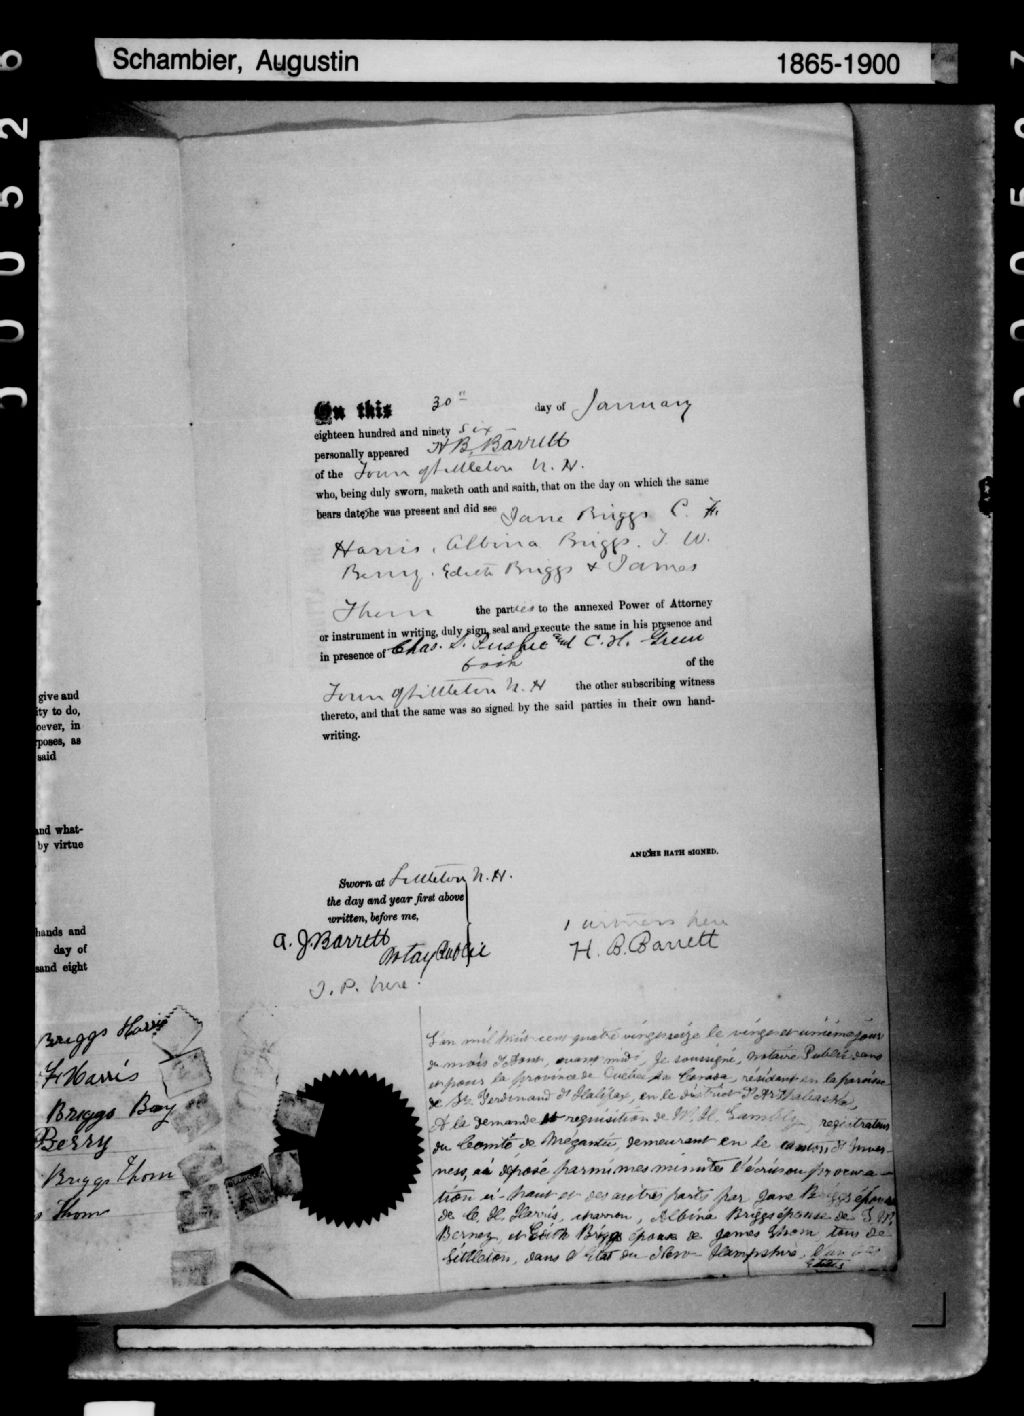 Schambier, Augustin 1865-1900
On this 30th day of January
eighteen hundred and ninety six
personally appeared H B. Barrett
of the Town of Littleton N. H.
who, being duly sworn, maketh oath and saith, that on the day on which the same
bears date he was present and did see Jane Briggs C. H.
Harris, Albina Briggs. T. W.
Berry. Edith Briggs & James
Thom the parties to the annexed Power of Attorney
or instrument in writing, duly sign, seal and execute the same in his presence and
in presence of Chas. and C. H. Green
both of the
Town of Littleton N. H the other subscribing witness
thereto, and that the same was so signed by the said parties in their own hand-
writing.
give and
ity to do,
oever, in
poses, as
said
and what-
by virtue
hands and
day of
sand eight
AND HE HATH SIGNED.
Sworn at Littleton N. H.
the day and year first above
written, before me,
A. J Barrett
Notary Public
J. P. here.
partners here
H. B. Barrett
Briggs Harris
Harris
Briggs Bay
Berry
Briggs Thom
Thom
L'an mil huit cent quatre vingt seize le vingt et unième jour
du mois avant midi, Je soussigné, Notaire Public dans
et pour la province de Québec en Canada, résidant en la paroisse
de St. Ferdinand d'Halifax, en le district d'Arthabaska,
A la demande et requisition de W. H. Lambly, registrateur
du Comté de Mégantic, demeurant en le canton d'Inver-
ness, ai déposé parmi mes minutes l'écrit ou procura-
tion ci-haut et des autres parts par Jane Briggs épouse
de C. H. Harris, Albina Briggs épouse de
Berney et Edith Briggs épouse de James Thom, tous de
Littleton, dans l'Etat du New-Hampshire,
Edith